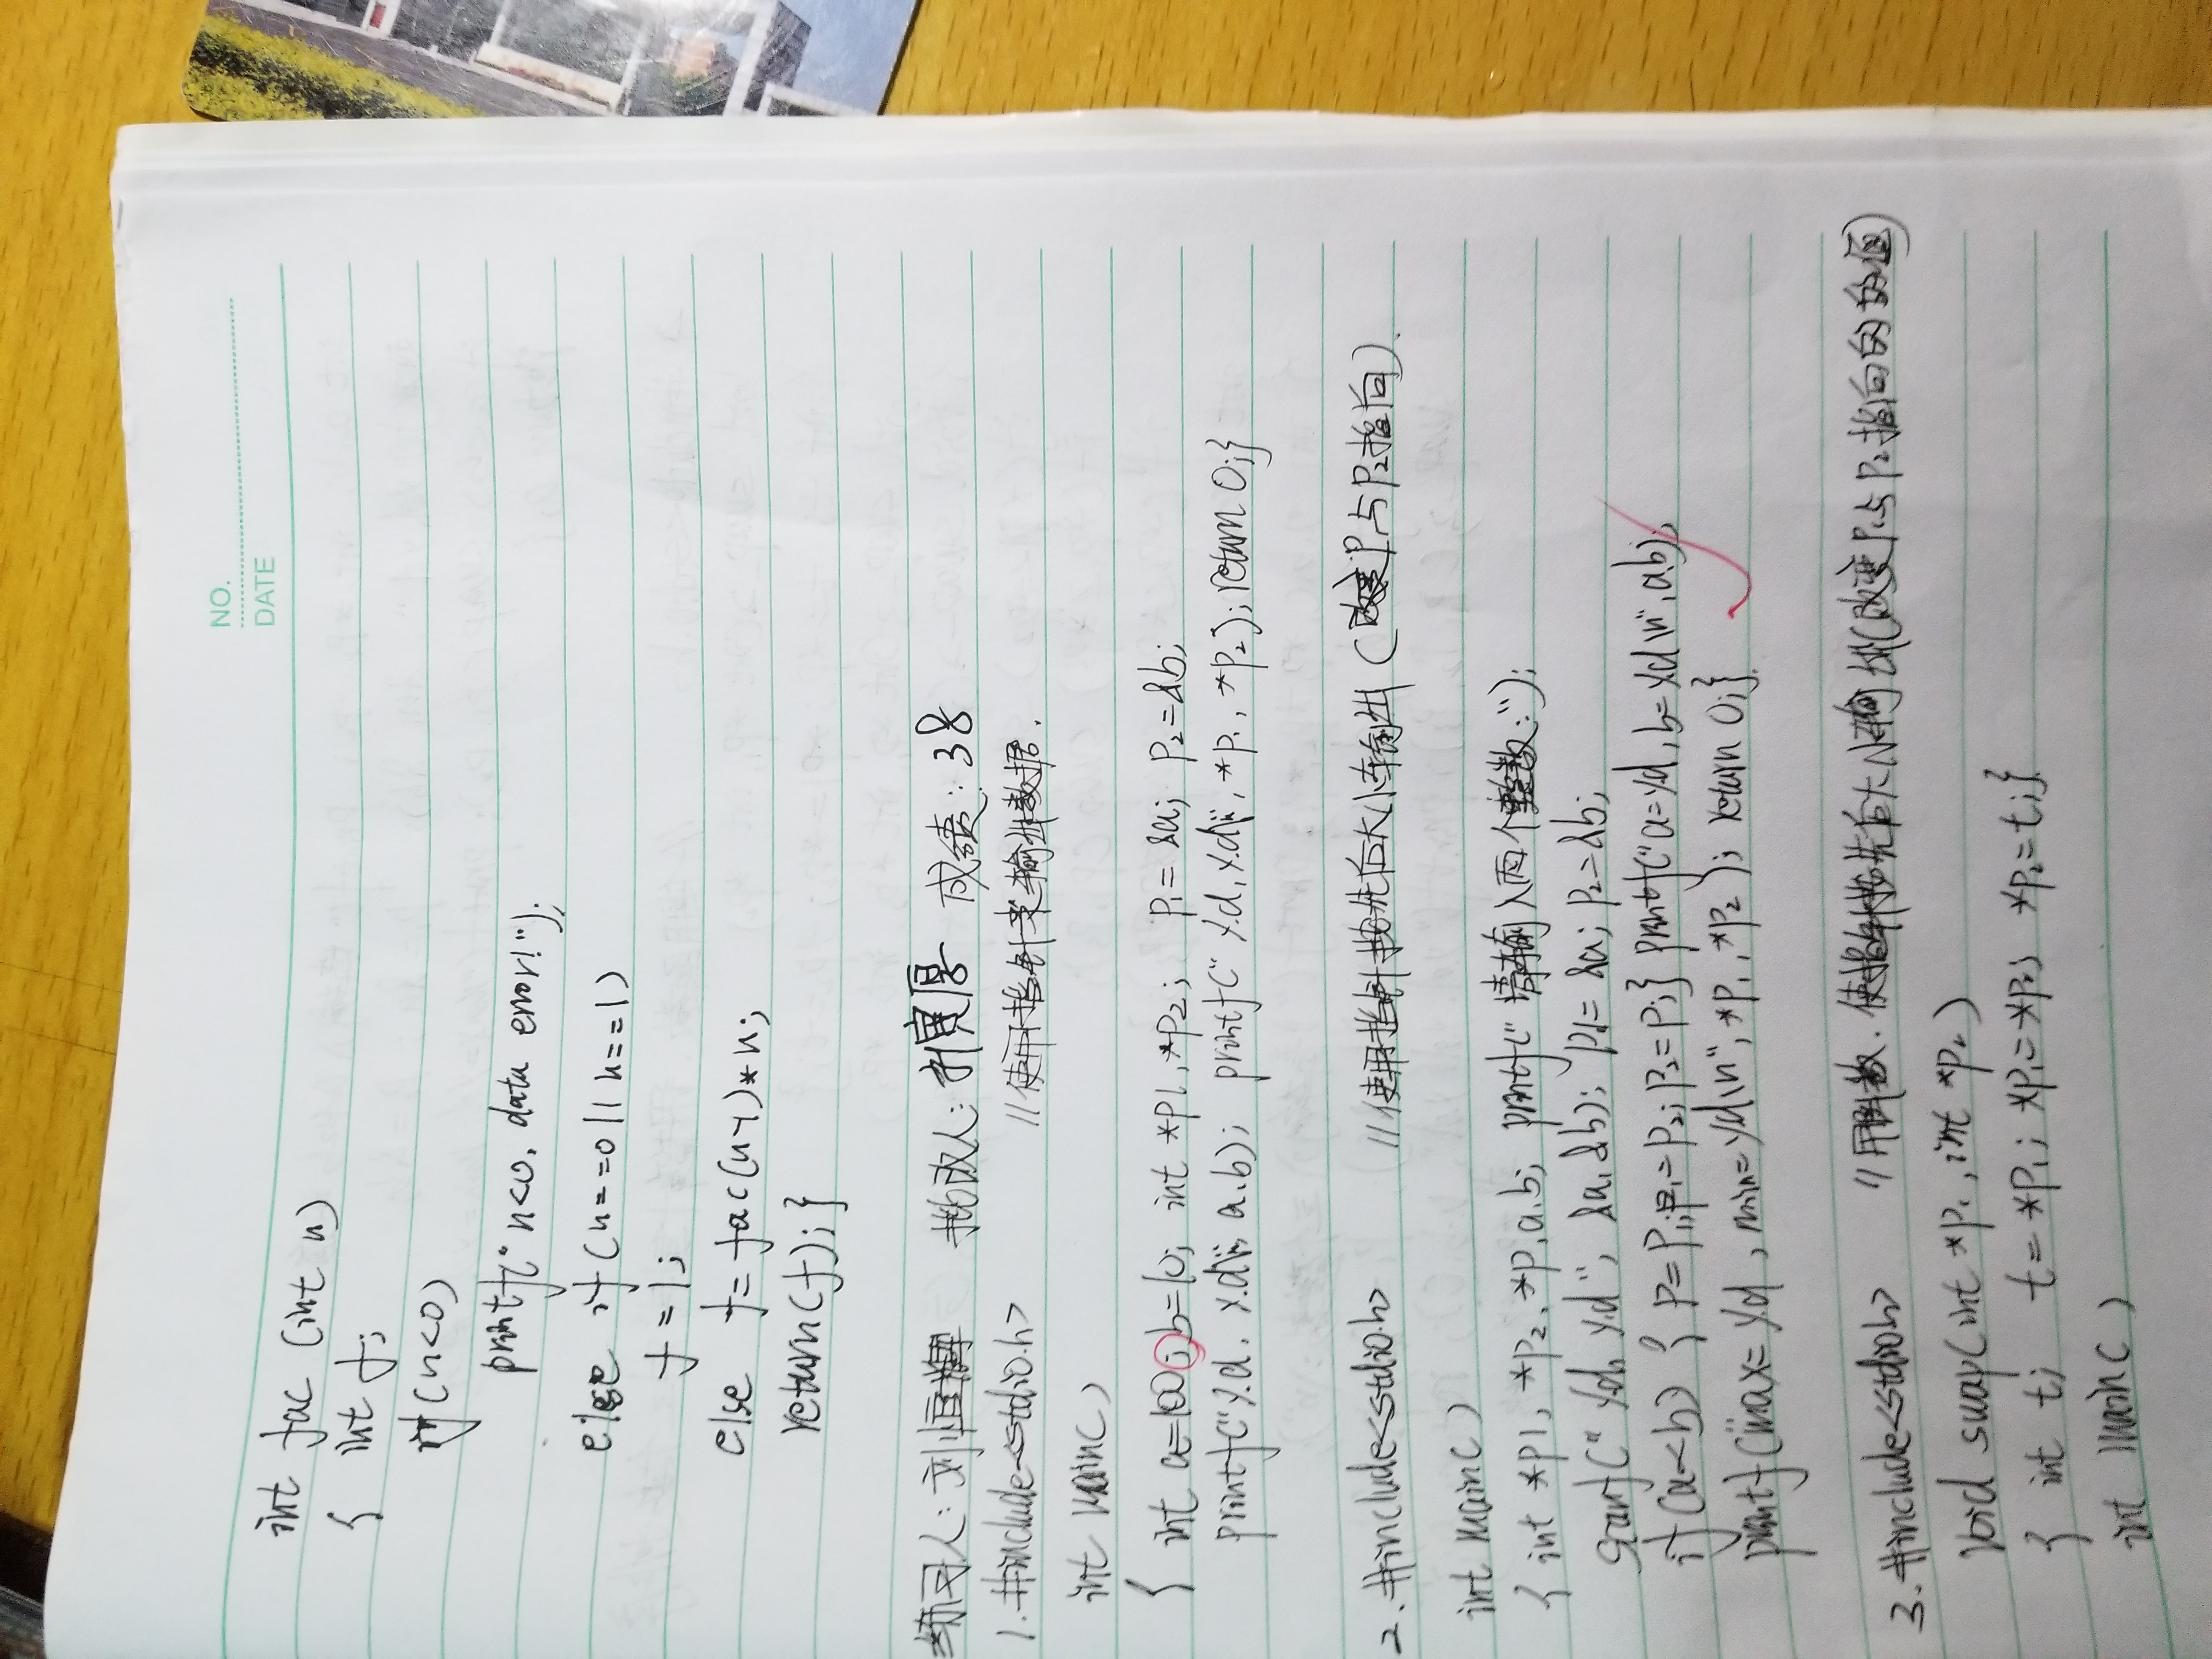 NO.
DATE
int fac (int n)
{ int f;
if (n<0)
printf("n<0, data error!");
else if (n==0||n==1)
f=1;
else f=fac(n-1)*n;
return(f);}
练习人: 刘恒 批改人: 宽厚 成绩: 38
1. #include<stdio.h> //使用指针来输出数据.
int main()
{ int a=100;b=10; int *p1,*p2; p1=&a; p2=&b;
printf("%d, %d\n", a,b); printf("%d,%d\n", *p1, *p2); return 0;}
2. #include<stdio.h> //使用指针按先后大小车输出 (改变P1与P2指向).
int main()
{ int *p1, *p2, *p,a,b; printf("请输入两个整数:");
scanf("%d, %d"; &a, &b); p1=&a; p2=&b;
if(a<b) { p=p1;p1=p2;p2=p;} printf("a=%d,b=%d\n",a,b);
printf("max=%d,min=%d\n",*p1,*p2); return 0;}
3. #include<stdio.h> //用函数.使指针按先后大小输出(改变P1与P2指向的的值)
void swap(int *p1,int *p2)
{ int t; t=*p1; *p1=*p2; *p2=t;}
int main()